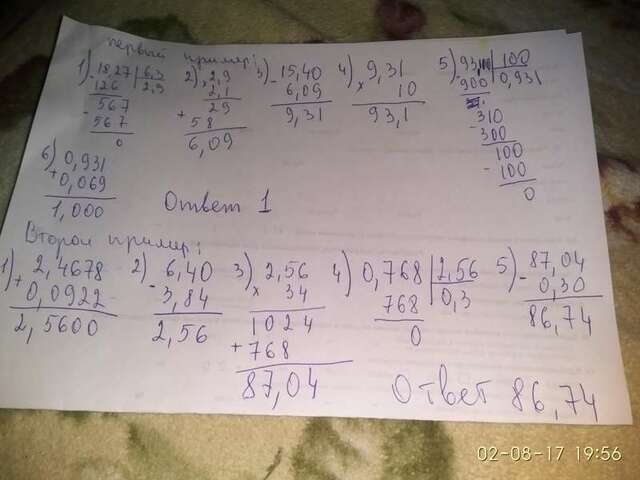 первый пример:
1) - 18,27 | 6,3
126 | 2,9
- 567
567
0
2) × 2,9
2,1
29
+ 58
6,09
3) - 15,40
6,09
9,31
4) × 9,31
10
93,1
5) - 93,1 | 100
900 | 0,931
- 310
300
100
- 100
0
6) + 0,931
0,069
1,000
Ответ 1
Второй пример:
1) + 2,4678
0,0922
2,5600
2) - 6,40
3,84
2,56
3) × 2,56
34
1024
+ 768
87,04
4) 0,768 | 2,56
768 | 0,3
0
5) - 87,04
0,30
86,74
Ответ 86,74
02-08-17 19:56